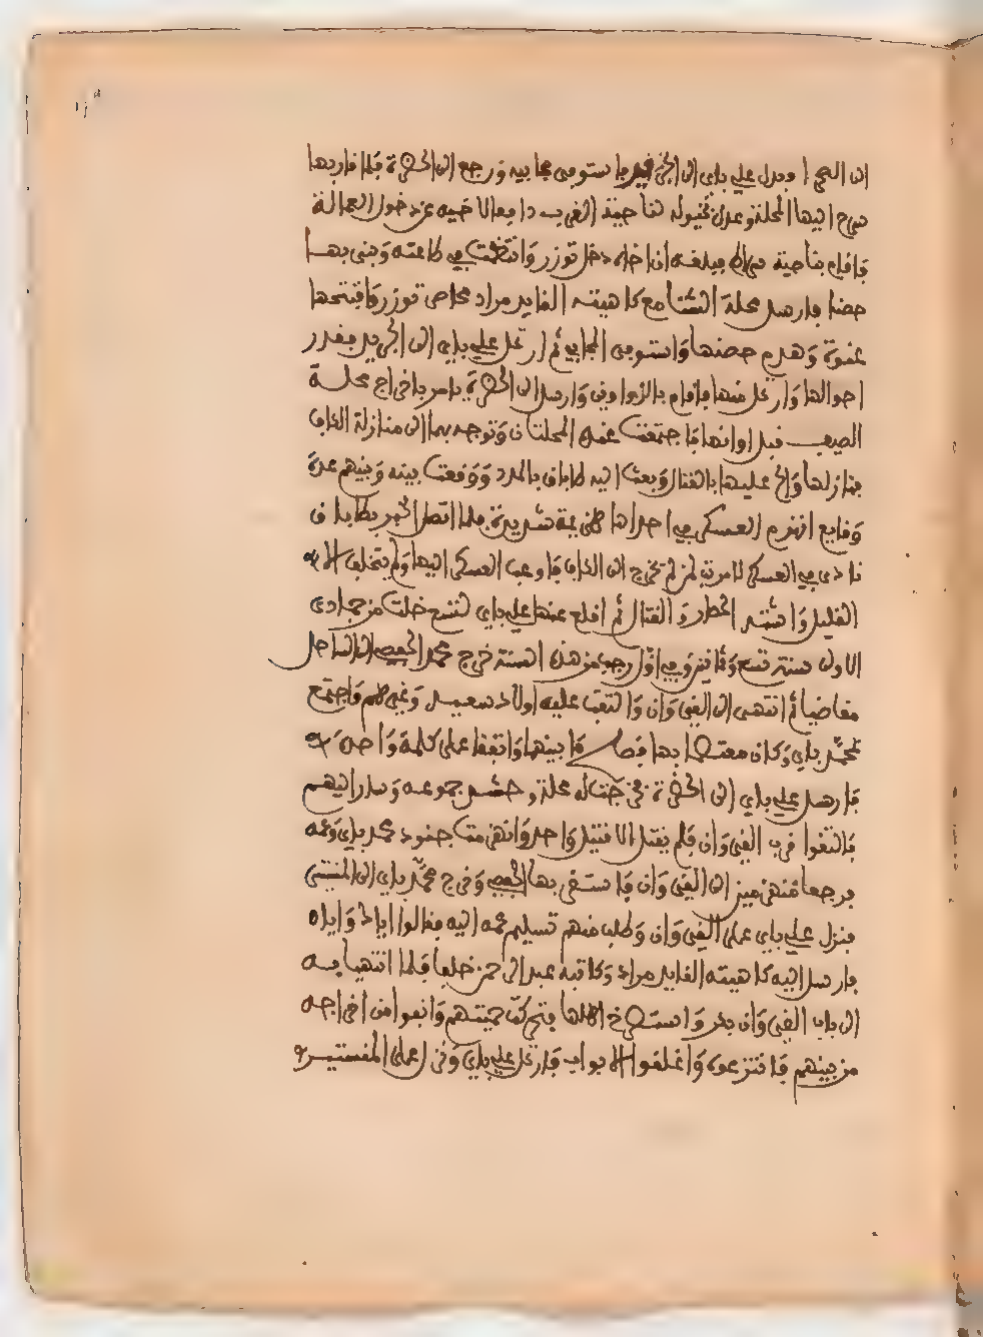 الى الصحرا ونزل علي باي الى الجريد فاستوفى مجابيه ورجع الى الحضرة فلما قاربها
سرح اليها المحلة وعدل بخيوله لناحية الغرب دافعا لاخيه عن دخول العمالة
فاقام بناحية فبلغه ان اخاه دخل توزر وانتظمت في طاعته وبنى بها
حصنا فارسل محلة الشتا مع كاهيته القايد مراد فحاصر توزر وافتتحها
عنوة وهدم حصنها واستوفى المجابي ثم ارتحل علي باي الى الجريد فقدر
احوالها وارتحل منها فاقام بالزوارين وارسل الى الحضرة يامر باخراج محلة
الصيف قبل اوانها فاجتمعت عنده المحلتان وتوجه بهما الى منازلة الكاف
فنازلها والح عليها بالقتال وبعث اليه طاباق بالمدد ووقعت بينه وبينهم عدة
وقايع انهزم العسكر في احداها هزيمة شديدة فلما اتصل الخبر بطاباق
نادى في العسكر لمن لم يخرج الى الكاف فاوعب العسكر اليها ولم يتخلف الا
القليل واشتد الحصار والقتال ثم اقلع عنها علي باي لتسع خلت من جمادى
الاولى سنة تسع وثمانين وفي اول رجب من هذه السنة خرج محمد الحفصي الى الساحل
مغاضبا ثم انتهى الى القيروان والتفت عليه اولاد سعيد وغيرهم واجتمع
بمحمد باي وكان معتصما بها فصلح ما بينهما واتفقا على كلمة واحدة
فارسل علي باي الى الحضرة فخرجت له محلة وحشد جموعه وسار اليهم
فالتقوا قرب القيروان فلم يقتل الا قتيل واحد وانهزمت جنود محمد باي وعمه
فرجعا منهزمين الى القيروان فاستقر بها الحفصي وخرج محمد باي الى المنستير
فنزل علي باي على القيروان وطلب منهم تسليم عمه اليه فقالوا اياك واياه
فارسل اليه كاهيته القايد مراد وكاتبه عبد الرحمن خلفا فلما انتهيا به
الى باب القيروان بكى واستصرخ اهلها فتحركت حميتهم وانفوا من اخراجه
من بينهم فانتزعوه واغلقوا الابواب فارتحل علي باي ونزل على المنستير